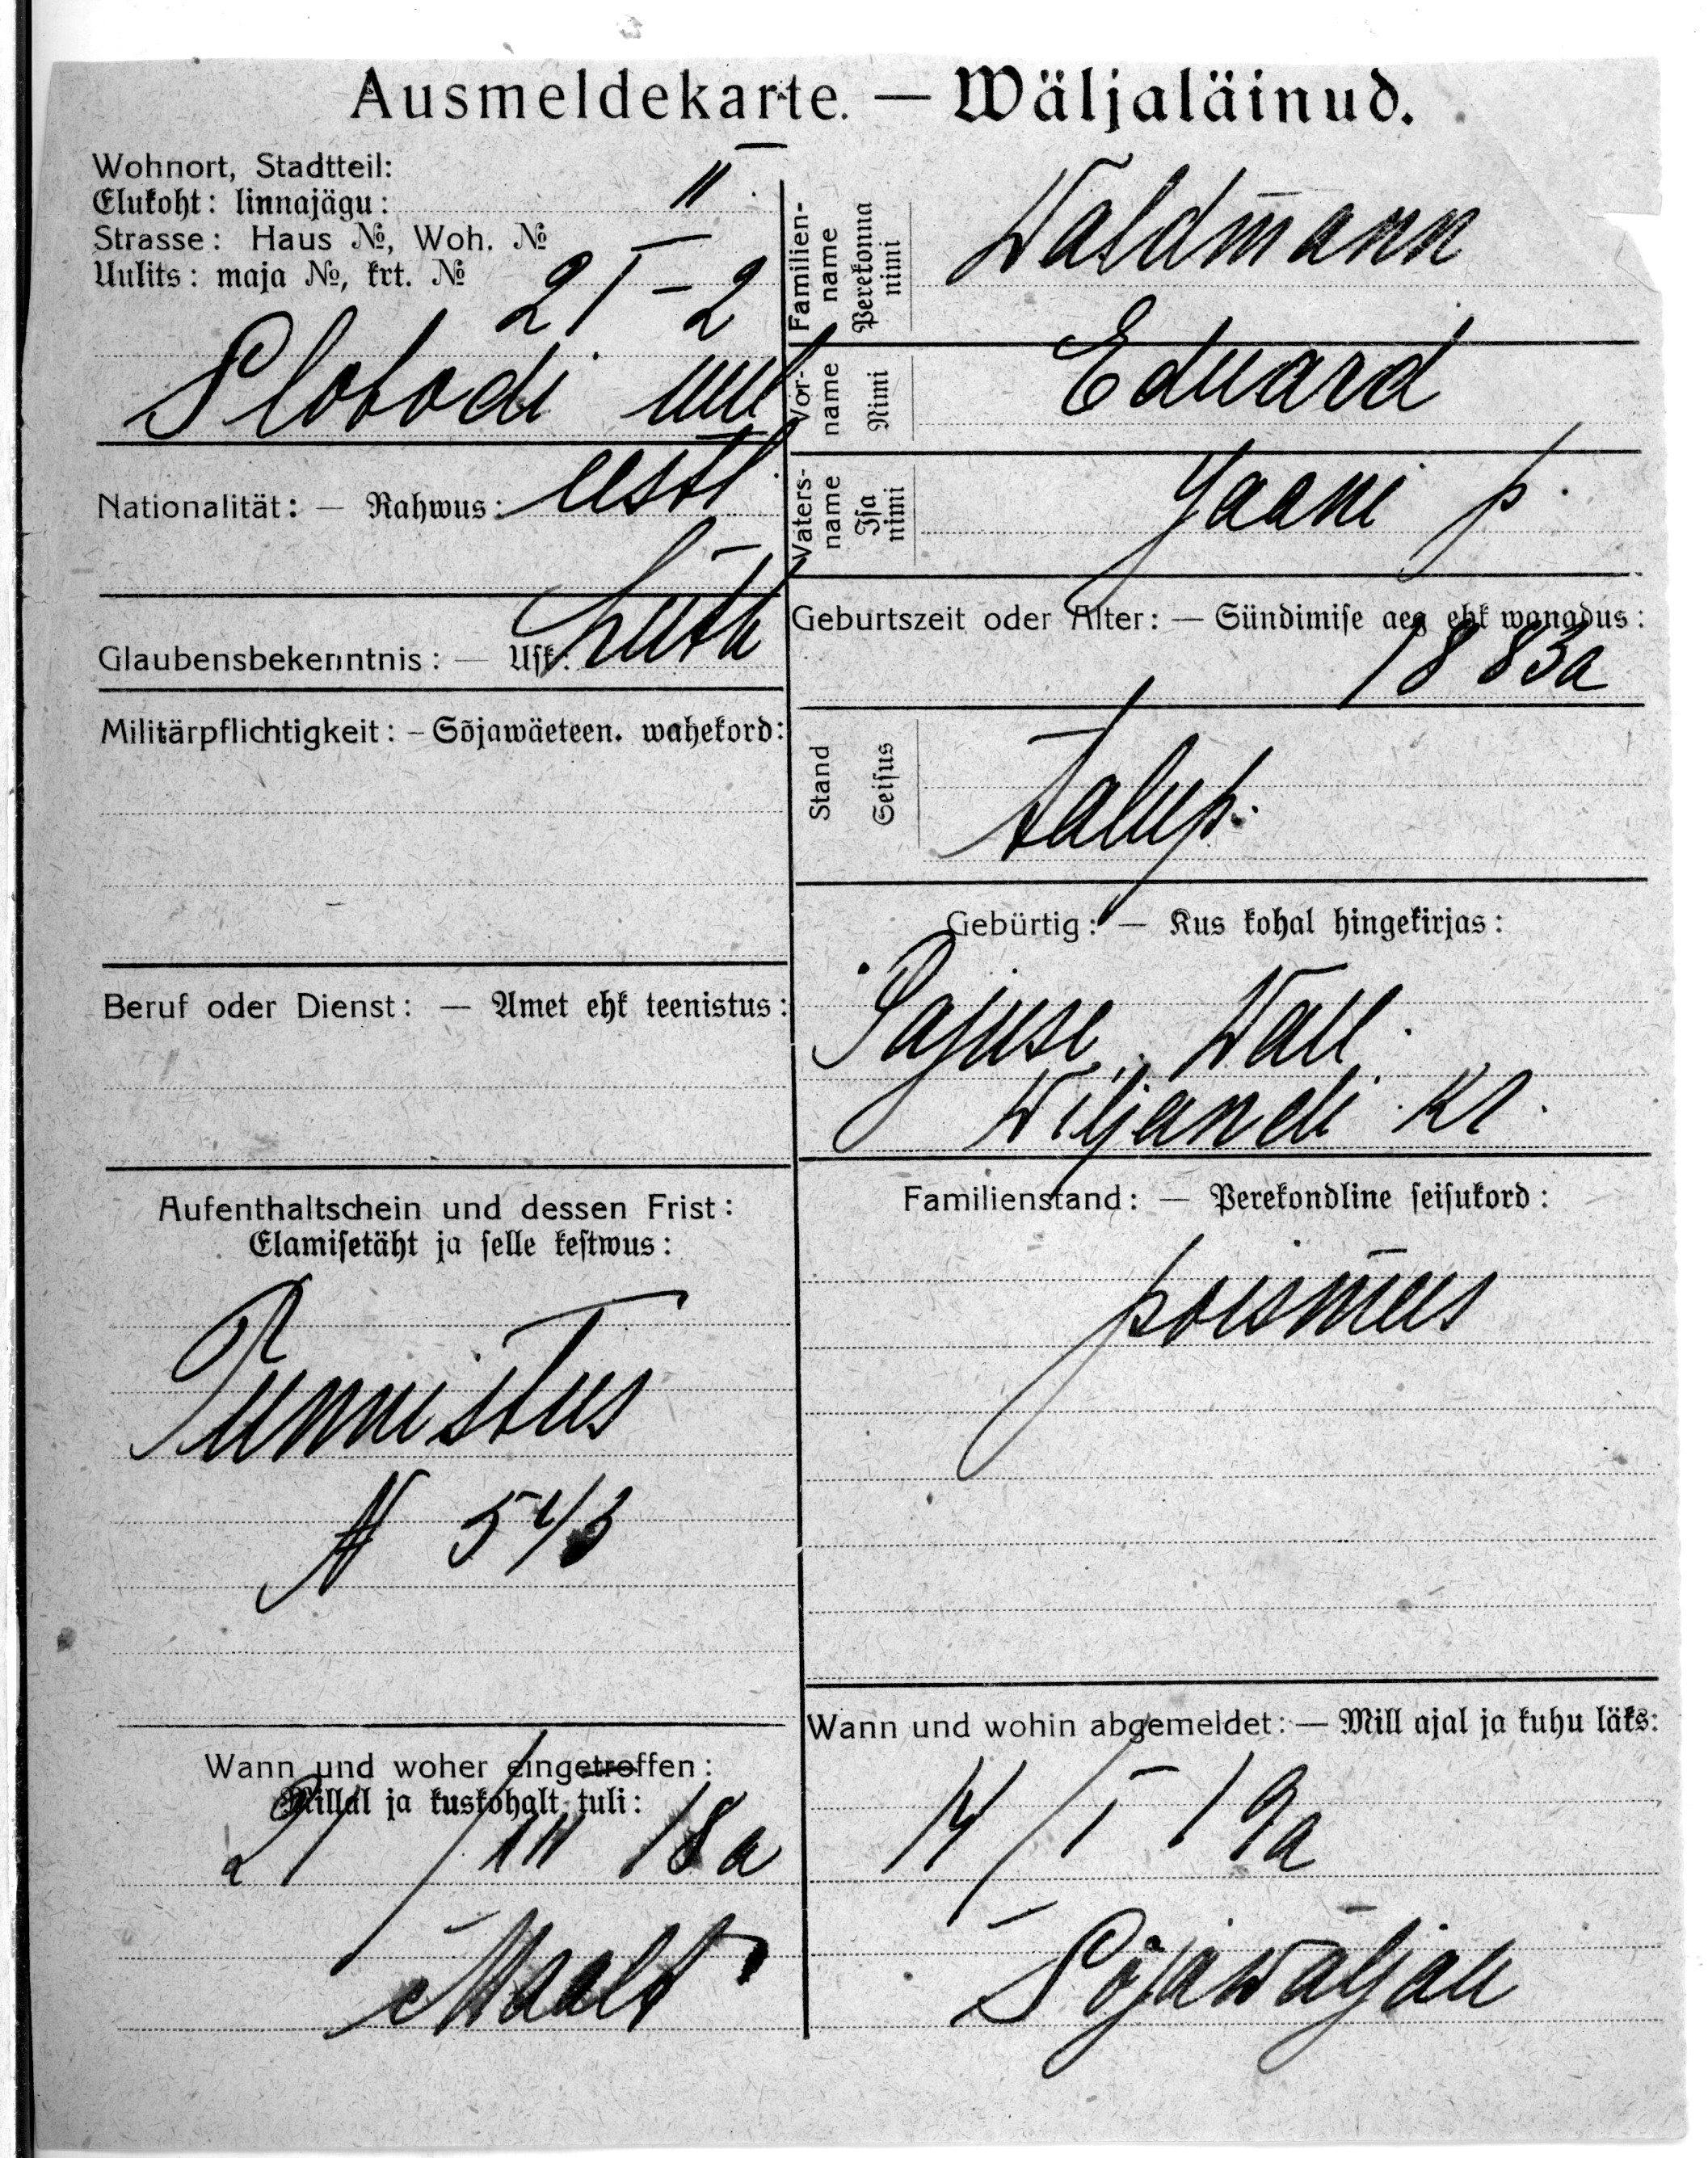 Ausmeldekarte. — Wäljaläinud.
Wohnort, Stadtteil:
Elukoht: linnajägu: II
Strasse: Haus №, Woh. №
Uulits: maja №, krt. №
21 – 2
Slobodi uul
Nationalität: — Rahwus: eestl.
Glaubensbekenntnis: — Usk: Luth
Militärpflichtigkeit: – Sõjawäeteen. wahekord:
Beruf oder Dienst: — Amet ehk teenistus:
Aufenthaltschein und dessen Frist:
Elamisetäht ja selle kestwus:
Tunnistus
N 543
Wann und woher eingetroffen:
Millal ja kuskohalt tuli:
21/III 18 a
Maalt
Familien-
name
Perekonna
nimi
Waldmann
Vor-
name
Nimi
Eduard
Vaters-
name
Isa
nimi
Jaani p.
Geburtszeit oder Alter: — Sündimise aeg ehk wanadus:
1883a
Stand
Seisus
talup.
Gebürtig: — Kus kohal hingekirjas:
Pajuse Wall.
Wiljandi Kr.
Familienstand: — Perekondline seisukord:
poismees
Wann und wohin abgemeldet: — Mill ajal ja kuhu läks:
14/I 19a
Sõjawäljale